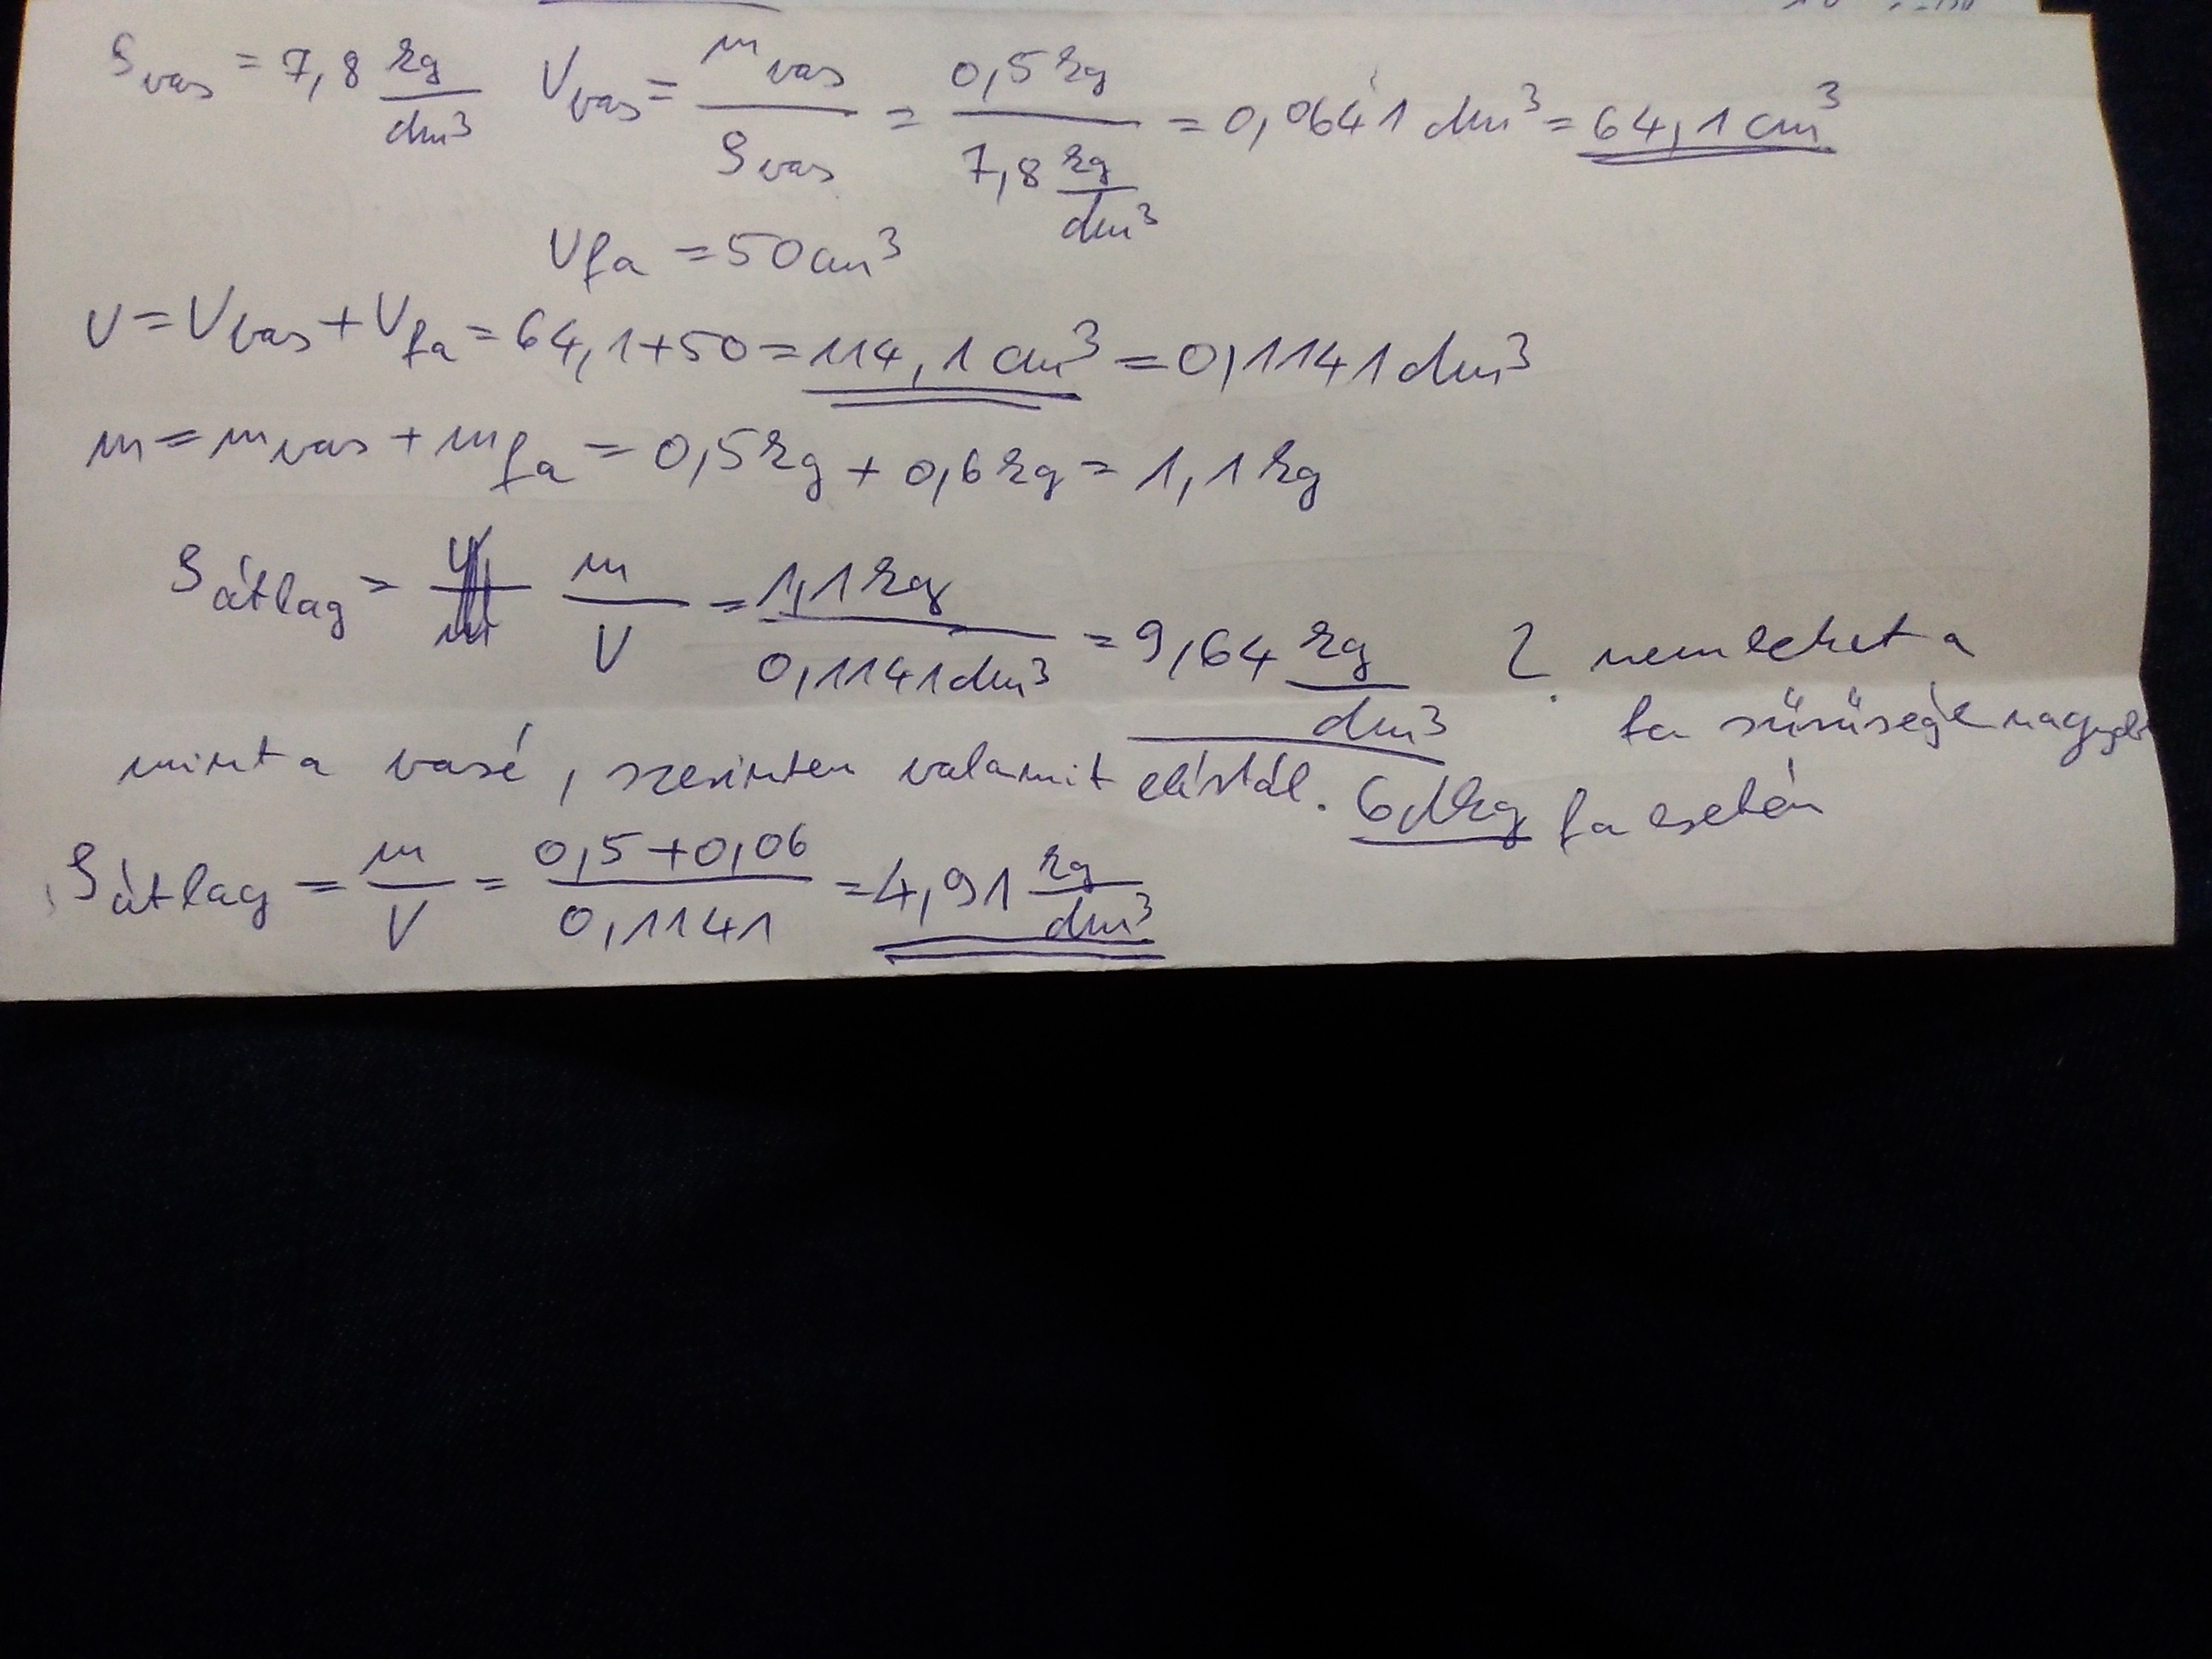 ρvas = 7,8 kg/dm³ Vvas = mvas/ρvas = 0,5 kg/7,8 kg/dm³ = 0,0641 dm³ = 64,1 cm³
Vfa = 50 cm³
V = Vvas + Vfa = 64,1 + 50 = 114,1 cm³ = 0,1141 dm³
m = mvas + mfa = 0,5 kg + 0,6 kg = 1,1 kg
ρátlag = m/V = 1,1 kg/0,1141 dm³ = 9,64 kg/dm³ ? nem lehet a
fa sűrűsége nagyob
mint a vasé, szerintem valamit elírtál. 6 dkg fa esetén
ρátlag = m/V = 0,5 + 0,06/0,1141 = 4,91 kg/dm³